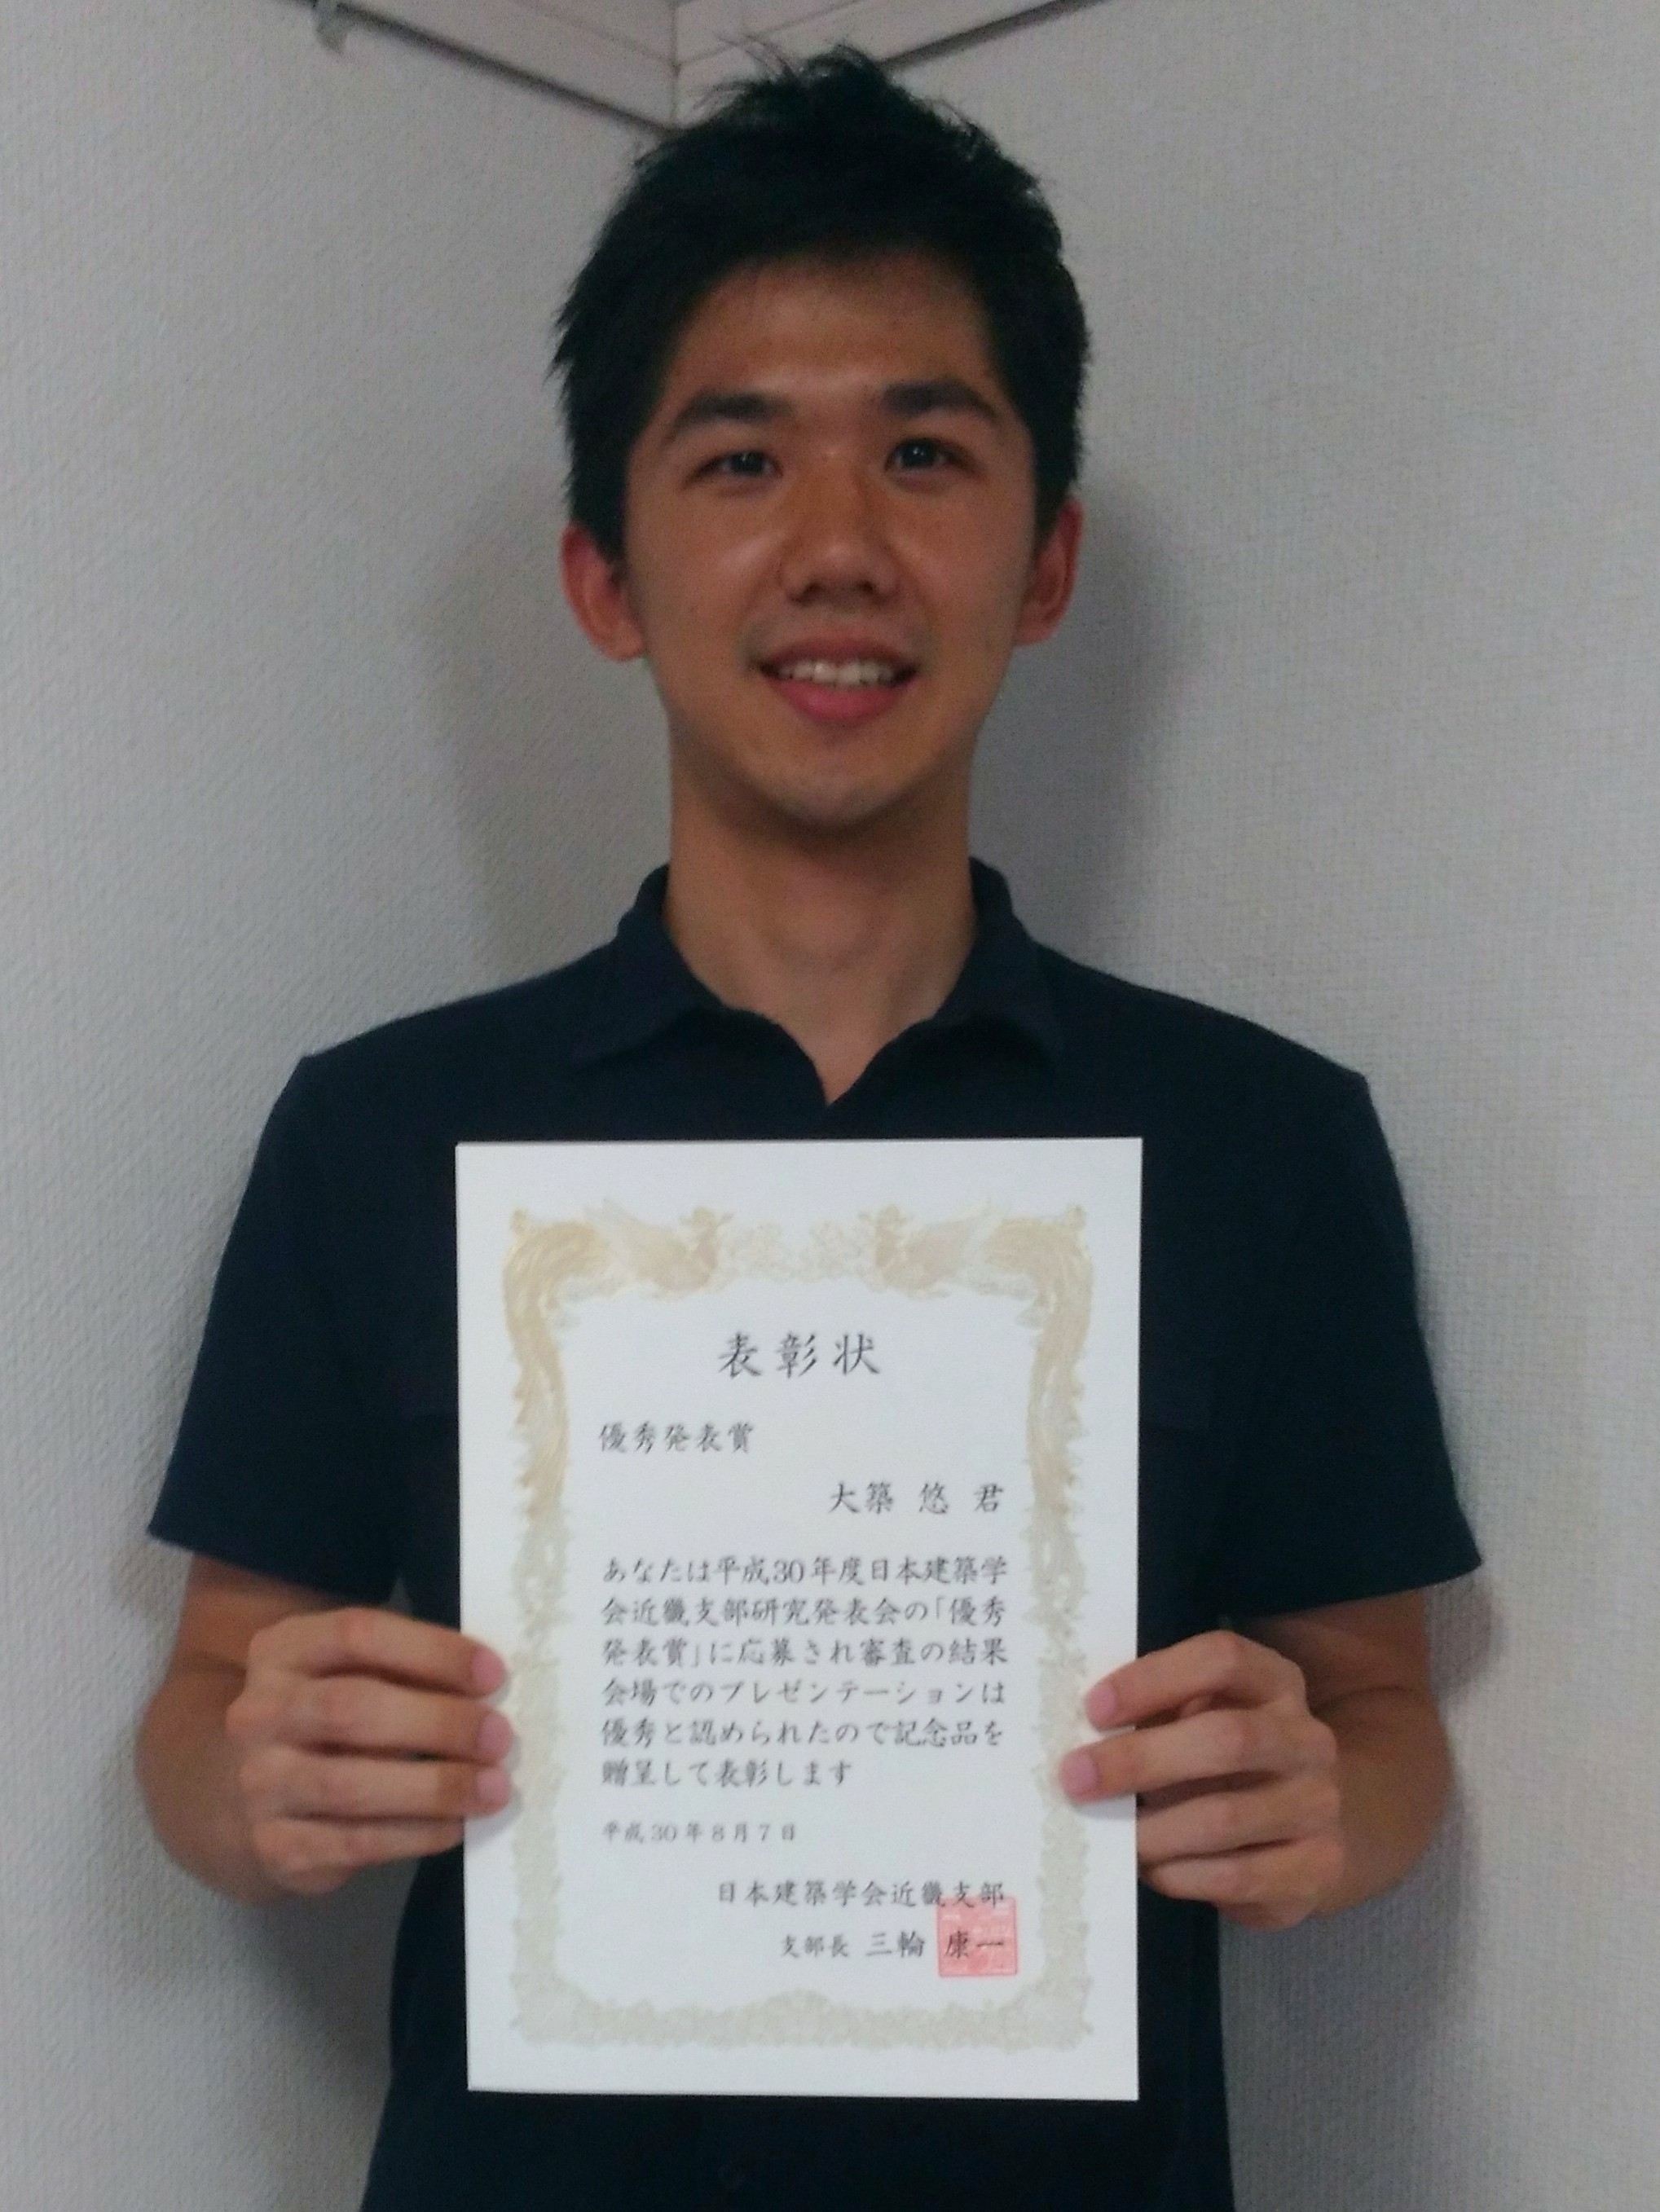 表彰状
優秀発表賞
大築 悠 君
あなたは平成30年度日本建築学
会近畿支部研究発表会の「優秀
発表賞」に応募され審査の結果
会場でのプレゼンテーションは
優秀と認められたので記念品を
贈呈して表彰します
平成30年8月7日
日本建築学会近畿支部
支部長 三輪 康一